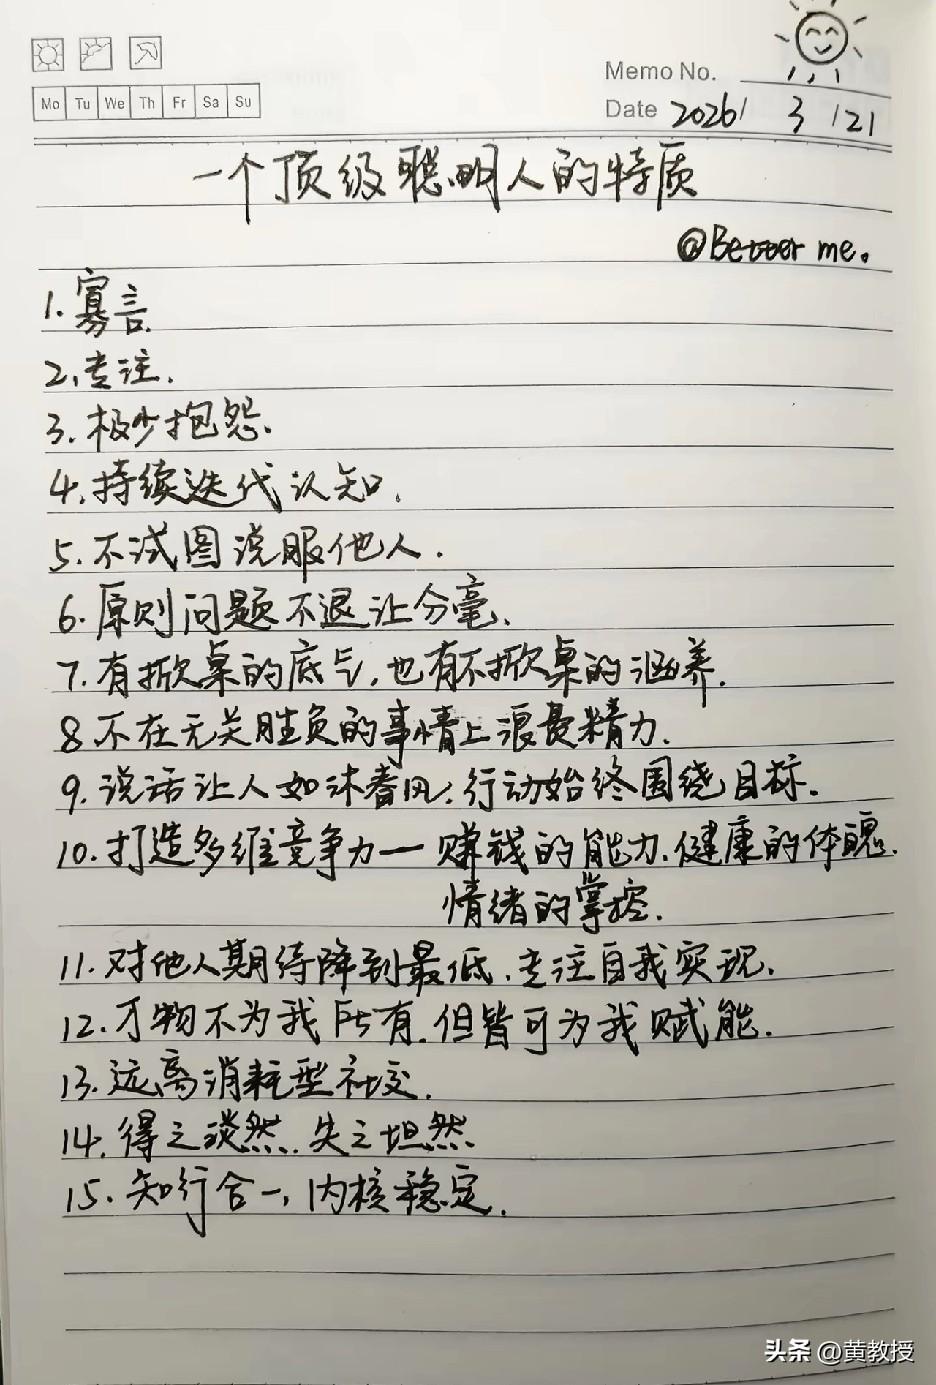 Memo No.
Mo Tu We Th Fr Sa Su
Date 2026/ 3 /21
一个顶级聪明人的特质
@Better me.
1.寡言.
2.专注.
3.极少抱怨.
4.持续迭代认知.
5.不试图说服他人.
6.原则问题不退让分毫.
7.有掀桌的底气,也有不掀桌的涵养.
8不在无关胜负的事情上浪费精力.
9.说话让人如沐春风,行动始终围绕目标.
10.打造多维竞争力—赚钱的能力.健康的体魄.
情绪的掌控.
11.对他人期待降到最低.专注自我实现.
12.万物不为我所有.但皆可为我赋能.
13.远离消耗型社交.
14.得之淡然.失之坦然
15.知行合一,内核稳定.
头条 @黄教授